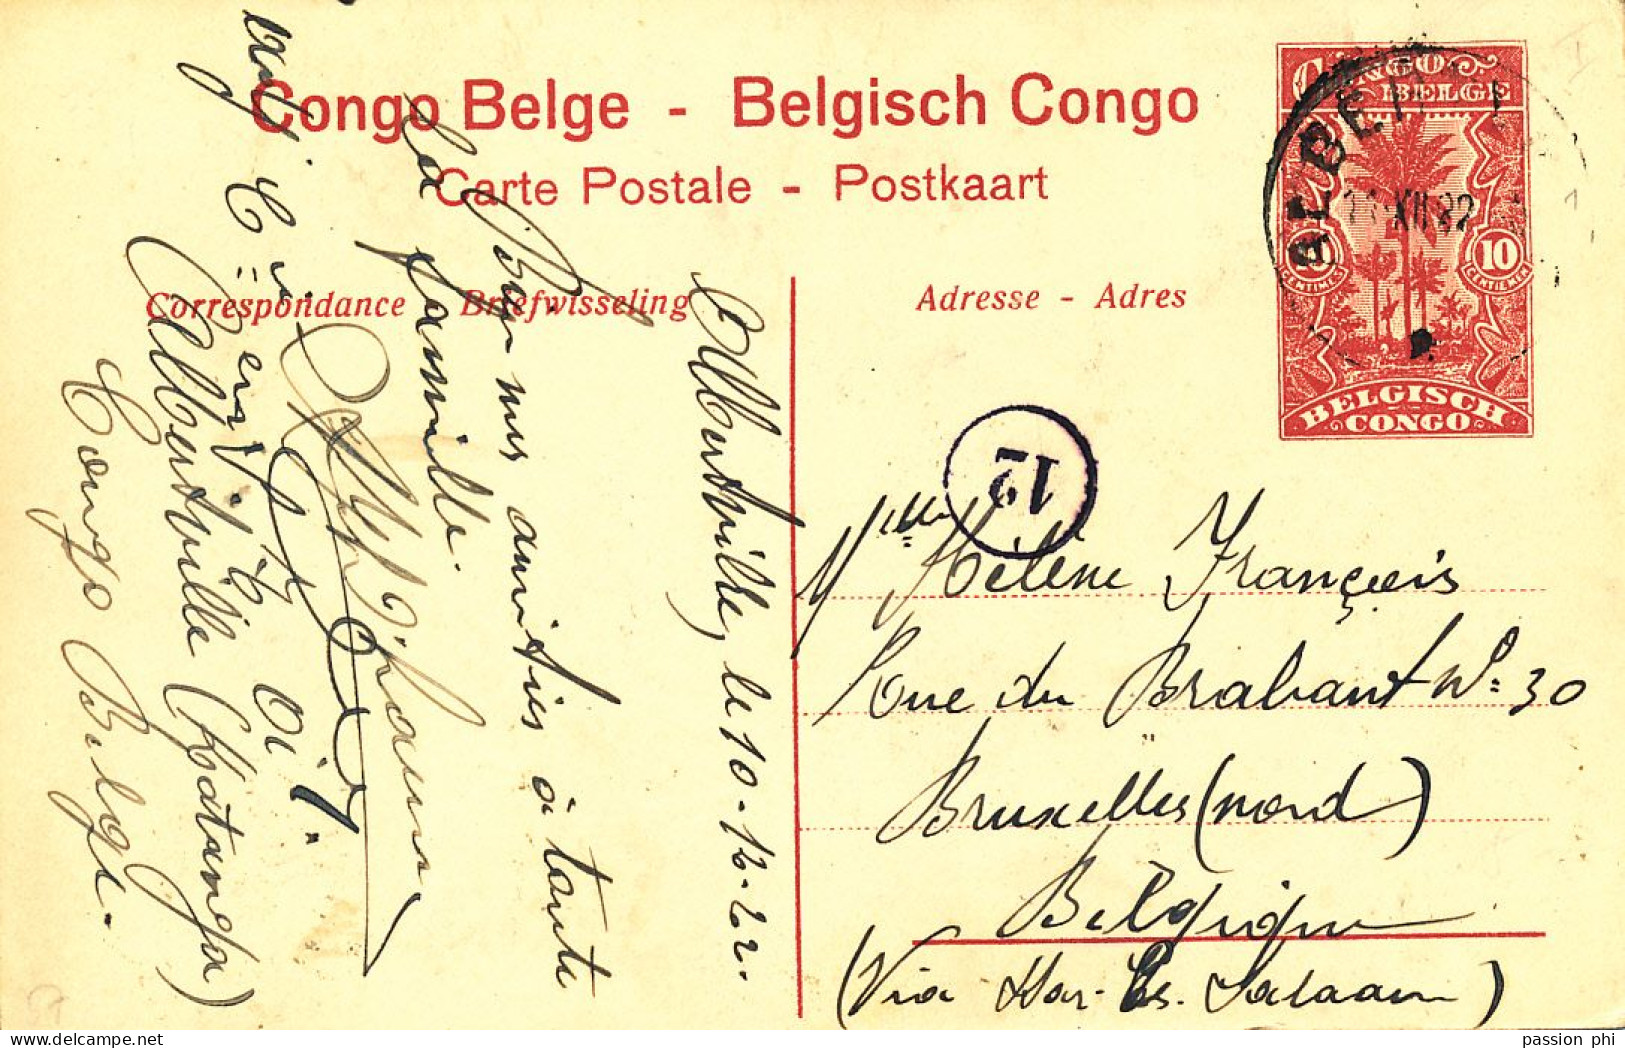 Congo Belge - Belgisch Congo
Carte Postale - Postkaart
Correspondance - Briefwisseling
Adresse - Adres
CONGO
BELGE
10
10
CENTIMES
CENTIEMEN
BELGISCH
CONGO
ALBERTV
XII 22
12
Albertville, le 10-12-22.
amitiés à toute
la famille.
Albertville (Katanga)
Congo Belge.
Melle Hélène François
Rue du Brabant No 30
Bruxelles (nord)
Belgique
(Via Dar-Es-Salaam)
passion phi